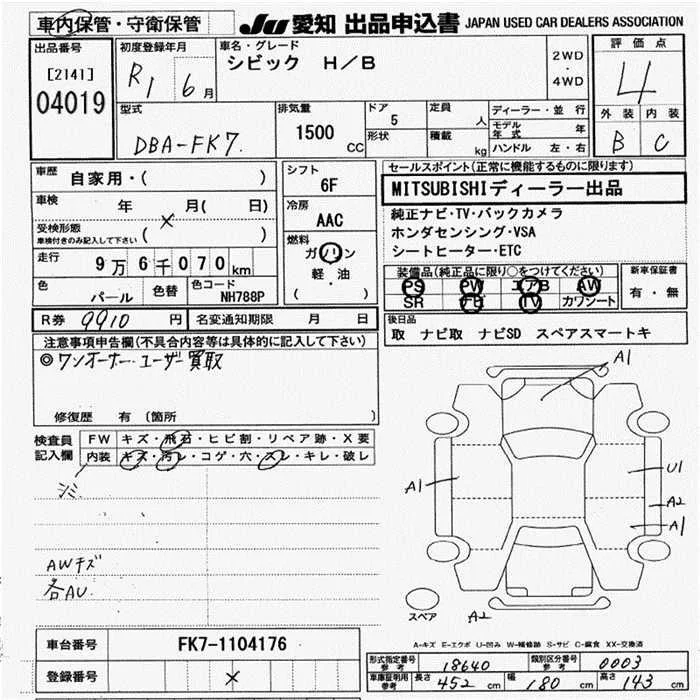 車内保管・守衛保管
JU 愛知 出品申込書 JAPAN USED CAR DEALERS ASSOCIATION
出品番号
[2141]
04019
初度登録年月
R1 6月
車名・グレード
シビック H/B
2WD
・
4WD
評価点
4
外装 内装
B C
型式
DBA-FK7.
排気量
1500 CC
ドア
5
形状
定員
人
積載
kg
ディーラー・並行
モデル年式 年
ハンドル 左・右
車歴
自家用・( )
車検
年 月( 日)
受検形態
車検付きのみ記入して下さい ( )
×
走行
9万6千070km
色
パール
色替
色コード
NH788P
シフト
6F
冷房
AAC
燃料
ガソリン
軽・油
( )
セールスポイント(正常に機能するものに限ります)
MITSUBISHIディーラー出品
純正ナビ・TV・バックカメラ
ホンダセンシング・VSA
シートヒーター・ETC
装備品(純正品に限り○をつけてください)
PS PW エアB AW
SR ナビ TV カワシート
新車保証書
有・無
R券 9910 円
名変通知期限 月 日
後日品
取 ナビ取 ナビSD スペアスマートキ
注意事項申告欄(不具合内容等は具体的に記入して下さい)
◎ワンオーナー ユーザー買取
修復歴 有 〔箇所 〕
検査員記入欄
FW キズ・飛石・ヒビ割・リペア跡・X要
内装 キズ・汚レ・コゲ・穴・スレ・キレ・破レ
シミ
AWキズ
各AU
A1
A1
U1
A2
A1
スペア
A2
A-キズ E-エクボ U-凹み W-補修跡 S-サビ C-腐食 XX-交換済
車台番号 FK7-1104176
登録番号 ×
形式指定番号 参考 18640
類別区分番号 参考 0003
車庫証明用 参考 長さ 452 cm 幅 180 cm 高さ 143 cm